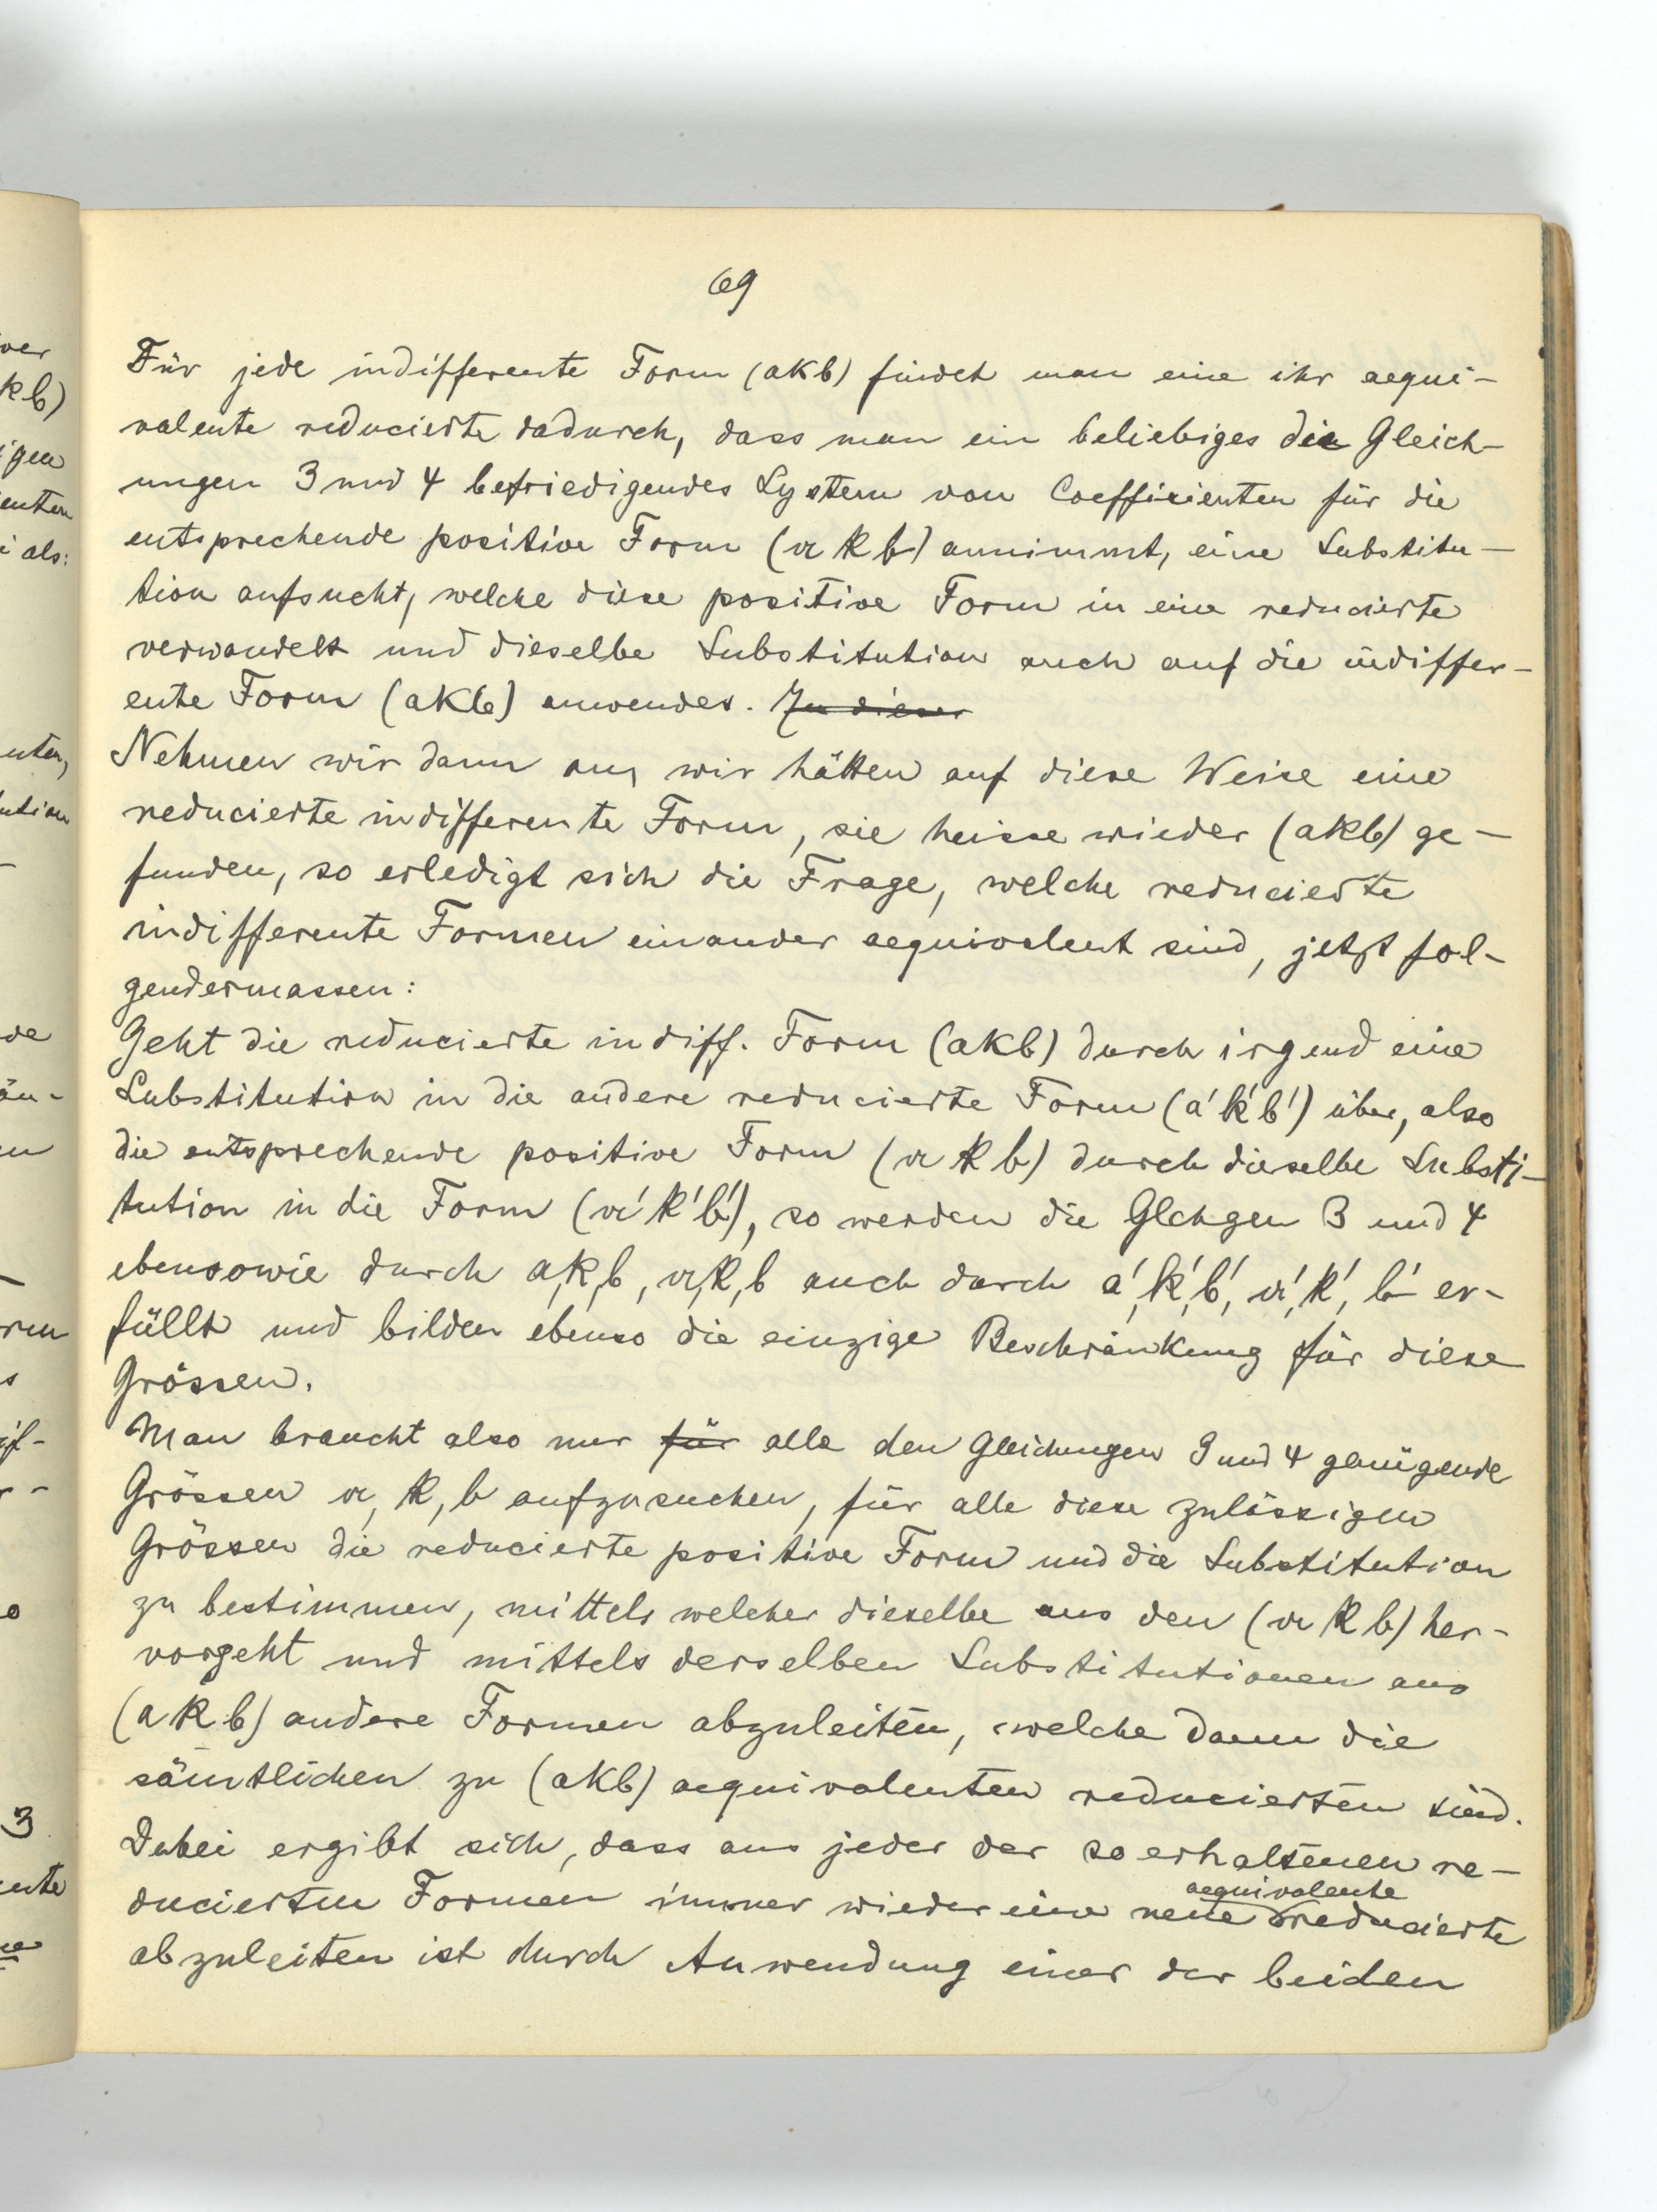 69
Für jede indifferente Form (akb) findet man eine ihr aequi-
valente reducierte dadurch, dass man ein beliebiges die Gleich-
ungen 3 und 4 befriedigendes System von Coefficienten für die
entsprechende positive Form (𝔞 𝔨 𝔟) annimmt, eine Substitu-
tion aufsucht, welche diese positive Form in eine reducierte
verwandelt und dieselbe Substitution auch auf die indiffer-
ente Form (akb) anwendet. In dieser
Nehmen wir dann an, wir hätten auf diese Weise eine
reducierte indifferente Form, sie heisse wieder (akb) ge-
funden, so erledigt sich die Frage, welche reducierte
indifferente Formen einander aequivalent sind, jetzt fol-
gendermassen:
Geht die reducierte indiff. Form (akb) durch irgend eine
Substitution in die andere reducierte Form (a'k'b') über, also
die entsprechende positive Form (𝔞 𝔨 𝔟) durch dieselbe Substi-
tution in die Form (𝔞'𝔨'𝔟'), so werden die Glchgen 3 und 4
ebensowie durch a,k,b, 𝔞,𝔨,𝔟 auch durch a',k',b', 𝔞',𝔨',𝔟' er-
füllt und bilden ebenso die einzige Beschränkung für diese
Grössen.
Man braucht also nur für alle den Gleichungen 3 und 4 genügende
Grössen 𝔞, 𝔨, 𝔟 aufzusuchen, für alle diese zulässigen
Grössen die reducierte positive Form und die Substitution
zu bestimmen, mittels welcher dieselbe aus den (𝔞 𝔨 𝔟) her-
vorgeht und mittels derselben Substitutionen aus
(akb) andere Formen abzuleiten, welche dann die
sämtlichen zu (akb) aequivalenten reducierten sind.
Dabei ergibt sich, dass aus jeder der so erhaltenen re-
aequivalente
ducierten Formen immer wieder eine neue reducierte
abzuleiten ist durch Anwendung einer der beiden